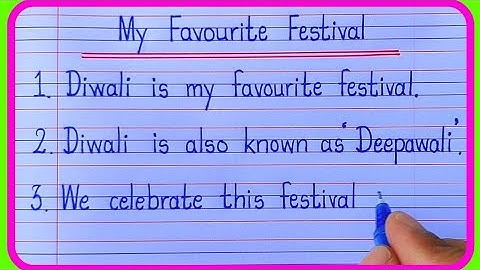 My Favourite Festival
1. Diwali is my favourite festival.
2. Diwali is also known as 'Deepawali'.
3. We celebrate this festival